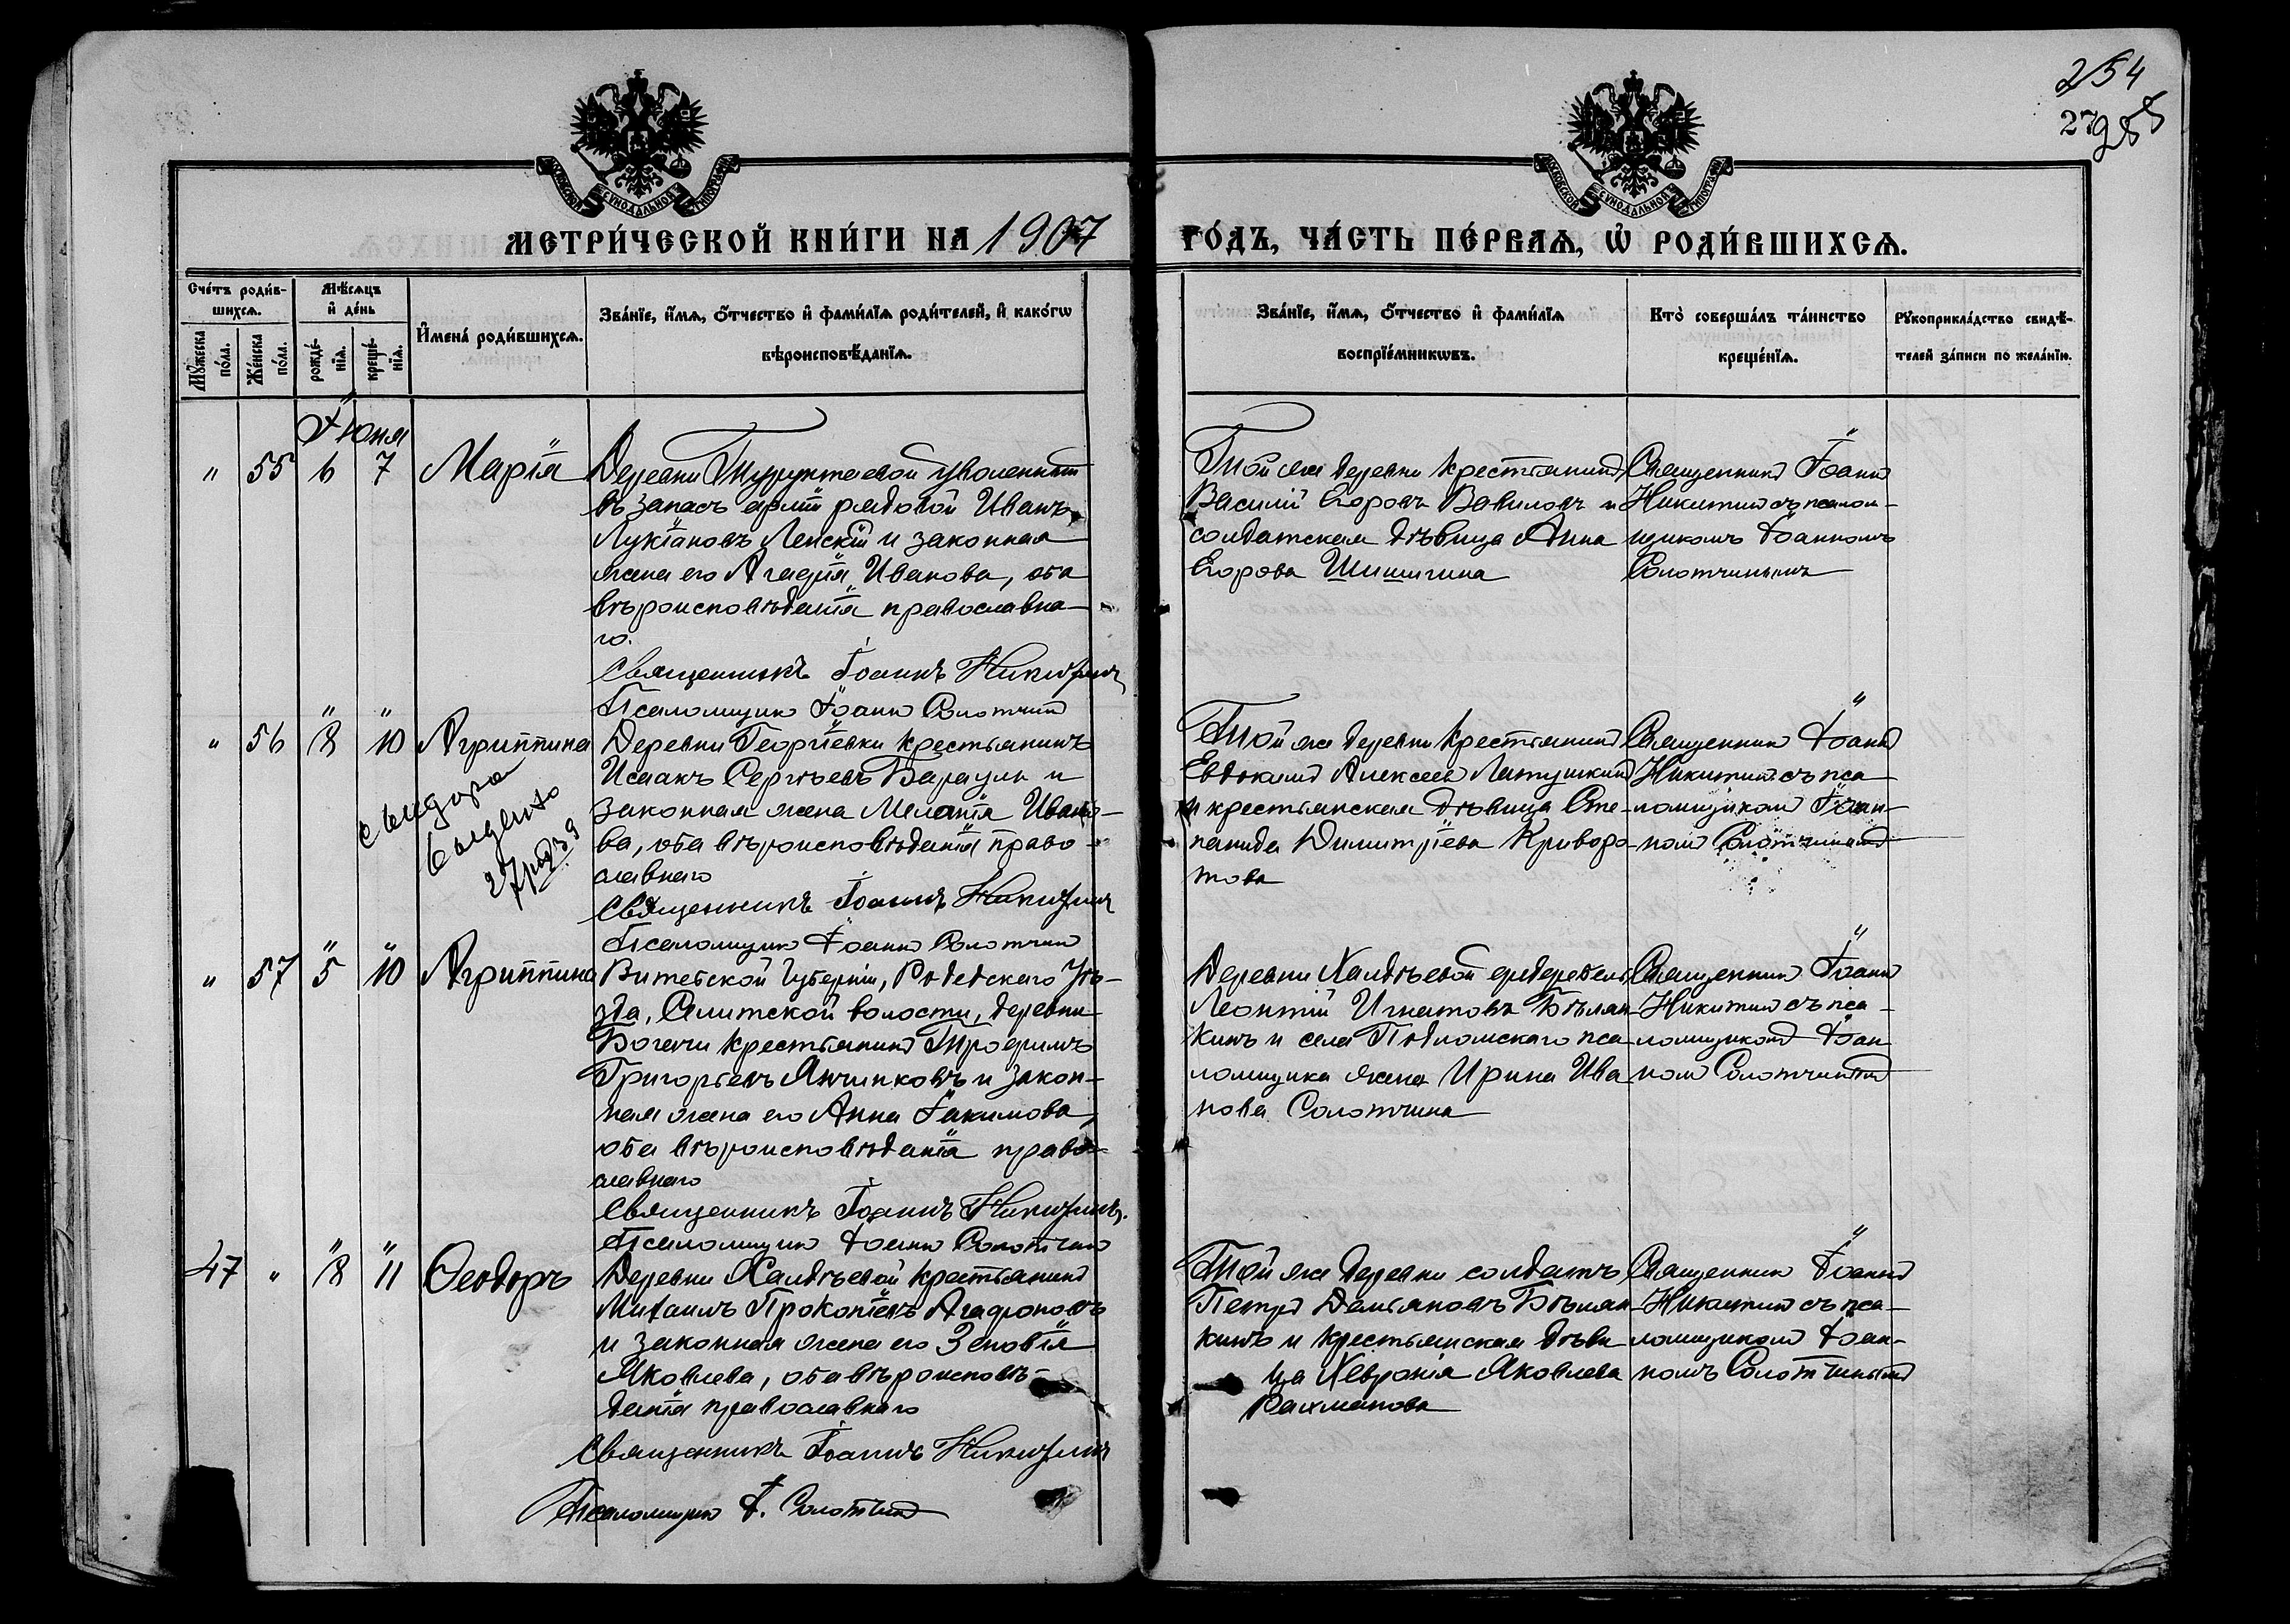 254
27
255
МОСКОВСКОЙ СѴНОДАЛЬНОЙ ТИПОГРАФІИ
МОСКОВСКОЙ СѴНОДАЛЬНОЙ ТИПОГРАФІИ
МЕТРИ́ЧЕСКОЙ КНИ́ГИ НА 1907
ГО́ДЪ, ЧА́СТЬ ПЕ́РВАѦ, Ѡ҆ РОДИ́ВШИХСѦ.
Сче́тъ роди́в-
шихсѧ.
Мѣ́сѧцъ
и҆ де́нь
Мꙋ́жеска
по́ла.
Же́нска
по́ла.
рожде́-
нїѧ.
креще́-
нїѧ.
И҆мена̀ роди́вшихсѧ.
Зва́нїе, и҆́мѧ, ѻ҆́тчество и҆ фами́лїѧ роди́телей, и҆ како́гѡ
вѣроисповѣ́данїѧ.
Зва́нїе, и҆́мѧ, ѻ҆́тчество и҆ фами́лїѧ
воспрїе́мникѡвъ.
Кто̀ соверша́лъ та́инство
креще́нїѧ.
Рꙋкоприкла́дство свидѣ́-
телей за́писи по жела́нїю.
Іюня
" 55 6 7 Марія
Деревни Турунтаевой уволенный
въ запасъ арміи рядовой Иванъ
Лукіановъ Ленскій и законная
жена его Агафія Иванова, оба
вѣроисповѣданія православна-
го.
Священникъ Іоаннъ Никитинъ
Псаломщикъ Іоаннъ Солотчинъ
Той же деревни крестьянинъ
Василій Егоровъ Вавиловъ и
солдатская дѣвица Анна
Егорова Шишигина
Священникъ Іоаннъ
Никитинъ съ псалом-
щикомъ Іоанномъ
Солотчинымъ
" 56 " 8 " 10 Агриппина
Деревни Георгіевки крестьянинъ
Исаакъ Сергѣевъ Бараули и
законная жена Меланія Ивано-
ва, оба вѣроисповѣданія право-
славнаго
Священникъ Іоаннъ Никитинъ
Псаломщикъ Іоаннъ Солотчинъ
Той же деревни крестьянинъ
Евдокимъ Алексеевъ Латушкинъ
и крестьянская дѣвица Сте-
панида Димитріева Криворо-
това
Священникъ Іоаннъ
Никитинъ съ пса-
ломщикомъ Іоан-
номъ Солотчинымъ
выдено
" 57 " 5 " 10 Агриппина
Витебской губерніи, уѣ-
зда, волости, деревни
крестьянинъ Трофимъ
Григорьевъ и закон-
ная жена его Анна Іакимова,
оба вѣроисповѣданія право-
славнаго
Священникъ Іоаннъ Никитинъ.
Псаломщикъ Іоаннъ Солотчинъ
Деревни Халдѣевой
Леонтій Игнатовъ Бѣлян-
кинъ и села Подломскаго пса-
ломщика жена Ирина Ива-
нова Солотчина
Священникъ Іоаннъ
Никитинъ съ пса-
ломщикомъ Іоан-
номъ Солотчинымъ
47 " " 8 " 11 Ѳеодоръ
Деревни Халдѣевой крестьянинъ
Михаилъ Прокопіевъ Агафоновъ
и законная жена его Зеновія
Яковлева, оба вѣроисповѣ-
данія православнаго
Священникъ Іоаннъ Никитинъ
Псаломщикъ І. Солотчинъ
Той же деревни солдатъ
Петръ Демьяновъ Бѣлян-
кинъ и крестьянская дѣви
ца Хеврокія Яковлева
Рахманова
Священникъ Іоаннъ
Никитинъ съ пса-
ломщикомъ Іоан-
номъ Солотчинымъ